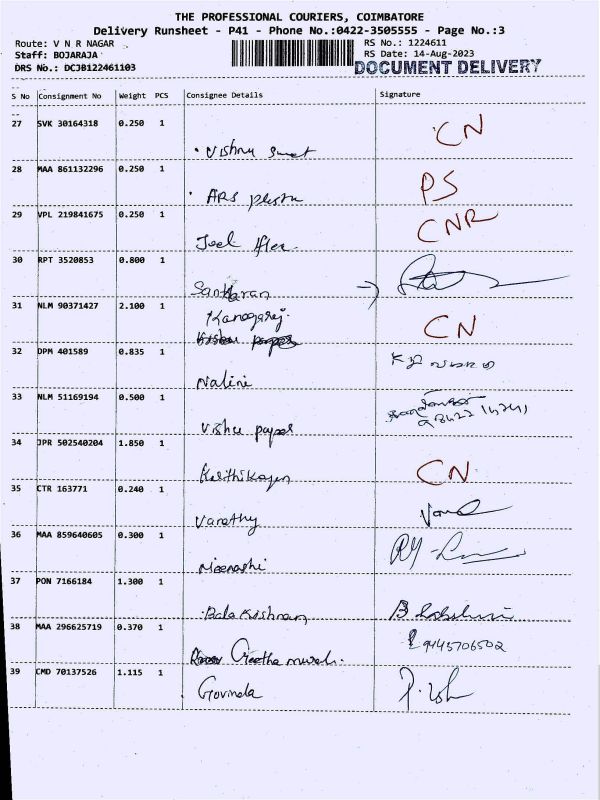 THE PROFESSIONAL COURIERS, COIMBATORE
Delivery Runsheet - P41 - Phone No.:0422-3505555 - Page No.:3
Route: V N R NAGAR
RS No.: 1224611
Staff: BOJARAJA
RS Date: 14-Aug-2023
DRS No.: DCJB122461103
DOCUMENT DELIVERY
S No Consignment No Weight PCS Consignee Details Signature
27 SVK 30164318 0.250 1 CN
Vishnu
28 MAA 861132296 0.250 1 PS
ARS
29 VPL 219841675 0.250 1 CNR
Joel
30 RPT 3520853 0.800 1
Sankaran
31 NLM 90371427 2.100 1 Kanagaraj. CN
32 DPM 401589 0.835 1
Nalini
33 NLM 51169194 0.500 1
34 JPR 502540204 1.850 1 CN
35 CTR 163771 0.240 1
Vanathy
36 MAA 859640605 0.300 1
Meenashi
37 PON 7166184 1.300 1
Bala Krishnan
38 MAA 296625719 0.370 1 9445706502
Geetha
39 CMD 70137526 1.115 1 Govinda